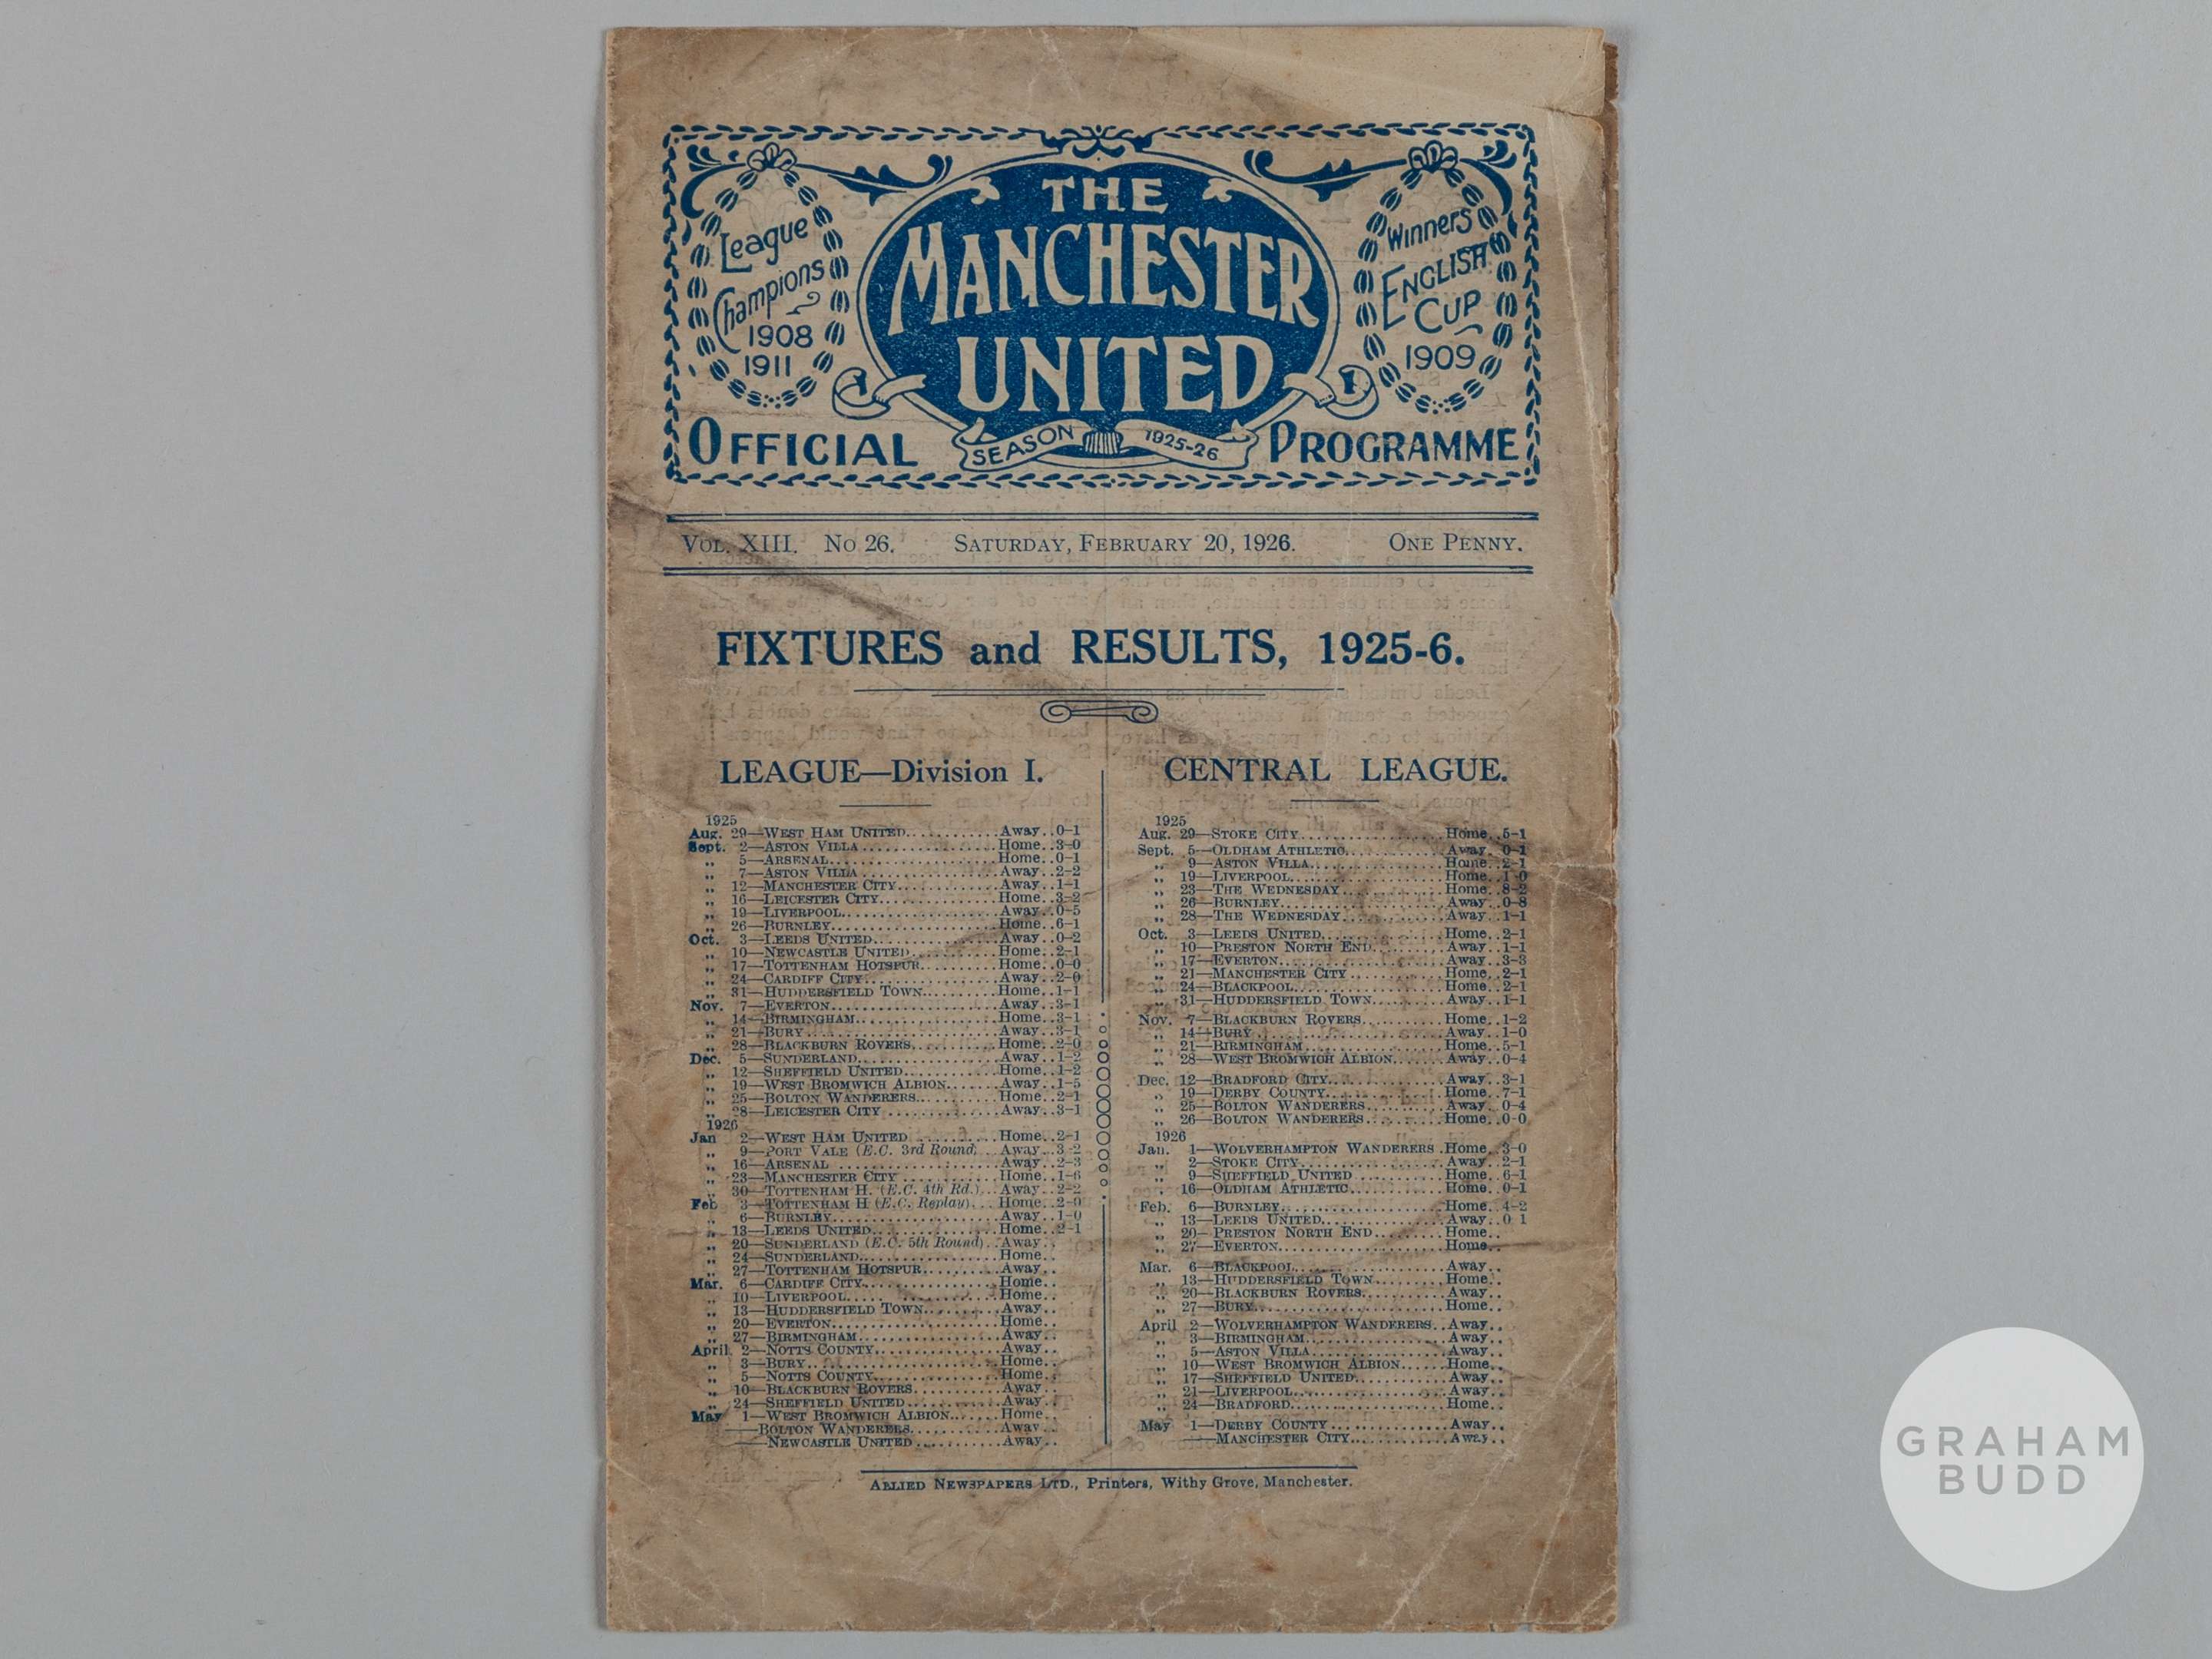 League
Champions
1908
1911
THE
MANCHESTER
UNITED
Winners
ENGLISH
CUP
1909
OFFICIAL
SEASON 1925-26
PROGRAMME
VOL. XIII. No 26. SATURDAY, FEBRUARY 20, 1926. ONE PENNY.
FIXTURES and RESULTS, 1925-6.
LEAGUE—Division I.
1925
Aug. 29—WEST HAM UNITED..........Away..0-1
Sept. 2—ASTON VILLA..........Home..3-0
„ 5—ARSENAL..........Home..0-1
„ 7—ASTON VILLA..........Away..2-2
„ 12—MANCHESTER CITY..........Away..1-1
„ 16—LEICESTER CITY..........Home..3-2
„ 19—LIVERPOOL..........Away..0-5
„ 26—BURNLEY..........Home..6-1
Oct. 3—LEEDS UNITED..........Away..0-2
„ 10—NEWCASTLE UNITED..........Home..2-1
„ 17—TOTTENHAM HOTSPUR..........Home..0-0
„ 24—CARDIFF CITY..........Away..2-0
„ 31—HUDDERSFIELD TOWN..........Home..1-1
Nov. 7—EVERTON..........Away..3-1
„ 14—BIRMINGHAM..........Home..3-1
„ 21—BURY..........Away..3-1
„ 28—BLACKBURN ROVERS..........Home..2-0
Dec. 5—SUNDERLAND..........Away..1-2
„ 12—SHEFFIELD UNITED..........Home..1-2
„ 19—WEST BROMWICH ALBION.......Away..1-5
„ 25—BOLTON WANDERERS..........Home..2-1
„ 28—LEICESTER CITY..........Away..3-1
1926
Jan 2—WEST HAM UNITED..........Home..2-1
„ 9—PORT VALE (E.C. 3rd Round)..Away..3-2
„ 16—ARSENAL..........Away..2-3
„ 23—MANCHESTER CITY..........Home..1-6
„ 30—TOTTENHAM H. (E.C. 4th Rd.)...Away..2-2
Feb 3—TOTTENHAM H (E.C. Replay)...Home..2-0
„ 6—BURNLEY..........Away..1-0
„ 13—LEEDS UNITED..........Home..2-1
„ 20—SUNDERLAND (E.C. 5th Round)..Away..
„ 24—SUNDERLAND..........Home..
„ 27—TOTTENHAM HOTSPUR..........Away..
Mar. 6—CARDIFF CITY..........Home..
„ 10—LIVERPOOL..........Home..
„ 13—HUDDERSFIELD TOWN..........Away..
„ 20—EVERTON..........Home..
„ 27—BIRMINGHAM..........Away..
April 2—NOTTS COUNTY..........Away..
„ 3—BURY..........Home..
„ 5—NOTTS COUNTY..........Home..
„ 10—BLACKBURN ROVERS..........Away..
„ 24—SHEFFIELD UNITED..........Away..
May 1—WEST BROMWICH ALBION.......Home..
——BOLTON WANDERERS..........Away..
——NEWCASTLE UNITED..........Away..
CENTRAL LEAGUE.
1925
Aug. 29—STOKE CITY..........Home..5-1
Sept. 5—OLDHAM ATHLETIC..........Away..0-1
„ 9—ASTON VILLA..........Home..2-1
„ 19—LIVERPOOL..........Home..1-0
„ 23—THE WEDNESDAY..........Home..8-2
„ 26—BURNLEY..........Away..0-8
„ 28—THE WEDNESDAY..........Away..1-1
Oct. 3—LEEDS UNITED..........Home..2-1
„ 10—PRESTON NORTH END..........Away..1-1
„ 17—EVERTON..........Away..3-3
„ 21—MANCHESTER CITY..........Home..2-1
„ 24—BLACKPOOL..........Home..2-1
„ 31—HUDDERSFIELD TOWN..........Away..1-1
Nov. 7—BLACKBURN ROVERS..........Home..1-2
„ 14—BURY..........Away..1-0
„ 21—BIRMINGHAM..........Home..5-1
„ 28—WEST BROMWICH ALBION.......Away..0-4
Dec. 12—BRADFORD CITY..........Away..3-1
„ 19—DERBY COUNTY..........Home..7-1
„ 25—BOLTON WANDERERS..........Away..0-4
„ 26—BOLTON WANDERERS..........Home..0-0
1926
Jan. 1—WOLVERHAMPTON WANDERERS.Home..3-0
„ 2—STOKE CITY..........Away..2-1
„ 9—SHEFFIELD UNITED..........Home..6-1
„ 16—OLDHAM ATHLETIC..........Home..0-1
Feb. 6—BURNLEY..........Home..4-2
„ 13—LEEDS UNITED..........Away..0 1
„ 20—PRESTON NORTH END..........Home..
„ 27—EVERTON..........Home..
Mar. 6—BLACKPOOL..........Away..
„ 13—HUDDERSFIELD TOWN..........Home..
„ 20—BLACKBURN ROVERS..........Away..
„ 27—BURY..........Home..
April 2—WOLVERHAMPTON WANDERERS..Away..
„ 3—BIRMINGHAM..........Away..
„ 5—ASTON VILLA..........Away..
„ 10—WEST BROMWICH ALBION......Home..
„ 17—SHEFFIELD UNITED..........Away..
„ 21—LIVERPOOL..........Away..
„ 24—BRADFORD..........Home..
May 1—DERBY COUNTY..........Away..
——MANCHESTER CITY..........Away..
ALLIED NEWSPAPERS LTD., Printers, Withy Grove, Manchester.
GRAHAM
BUDD